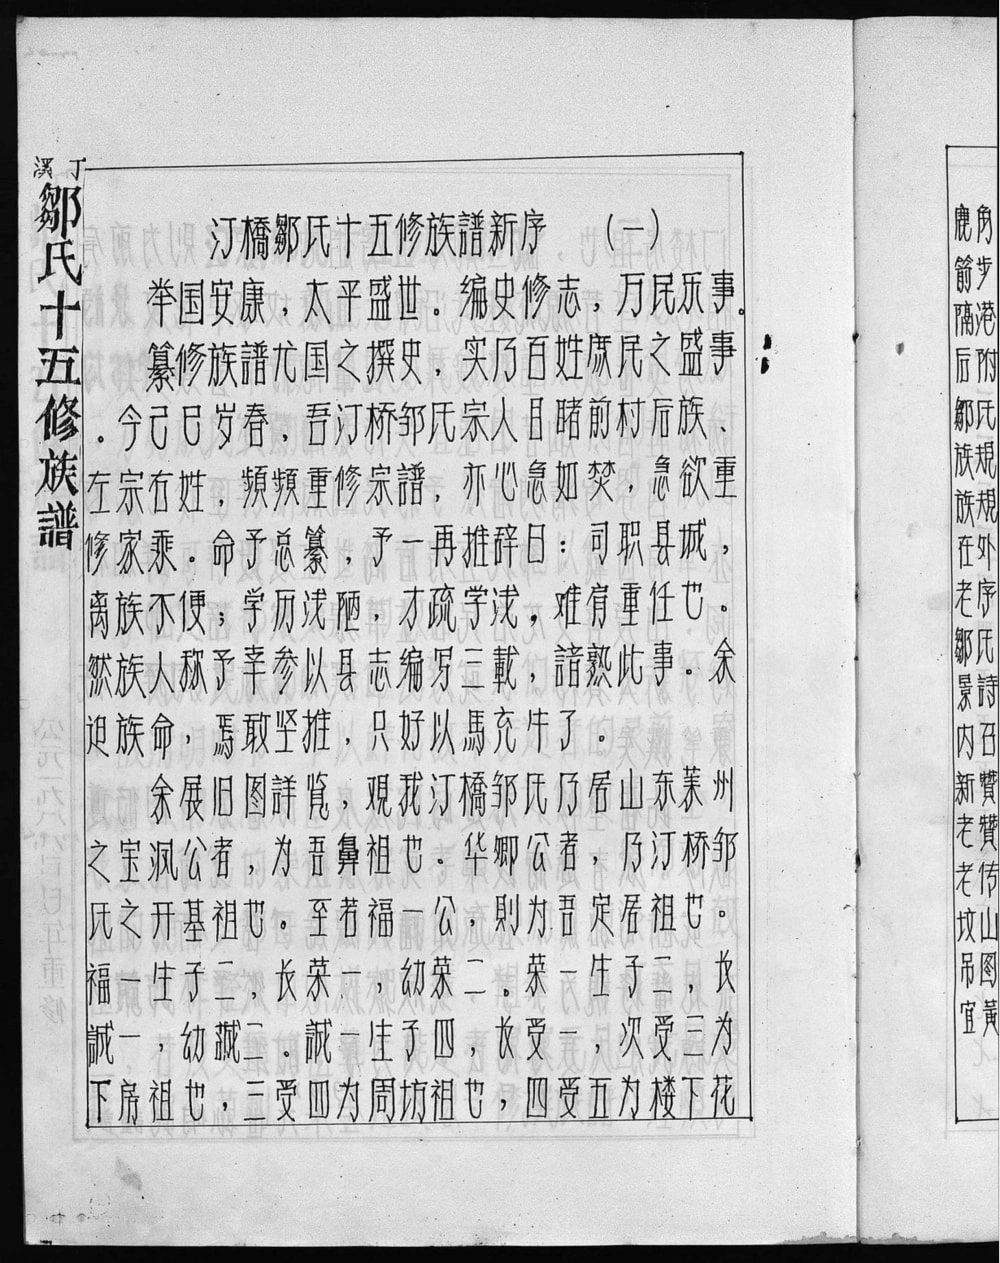 汀橋鄒氏十五修族譜新序 （一）
举国安康，太平盛世。编史修志，万民乐事。
纂修族譜尤国之撰史，实乃百姓庶民之盛事
。今己巳岁春，吾汀桥邹氏宗人目睹前村后族、
左宗右姓，頻頻重修宗譜，亦心急如焚，急欲重
修家乘。命予总纂，予一再推辞曰：司职县城，
离族不便；学历浅陋，才疏学浅，难肩重任也。
然族人称予幸参以县志编写三載，諳熟此事。余
迫族命，焉敢坚推，只好以馬充牛了。
余展旧图詳览，观我汀橋邹氏乃居山东莱州
之宝渢公者，为吾鼻祖也。华卿公者，乃汀桥邹
氏之开基祖也。至者福一公，則为吾定居祖也。
福一生子二，长荣一，幼荣二。荣一生子二，长
誠一，幼誠二。誠一生子四，长受一，次受三为
下房祖也，三受四为周坊祖也，四受五为楼下花
丁溪
鄒氏十五修族譜
鹿角
箭步
隔港
后附
鄒氏
族規
族規
在外
老序
鄒氏
景詩
内召
新贊
老贊
老传
坟山
吊图
宜黃